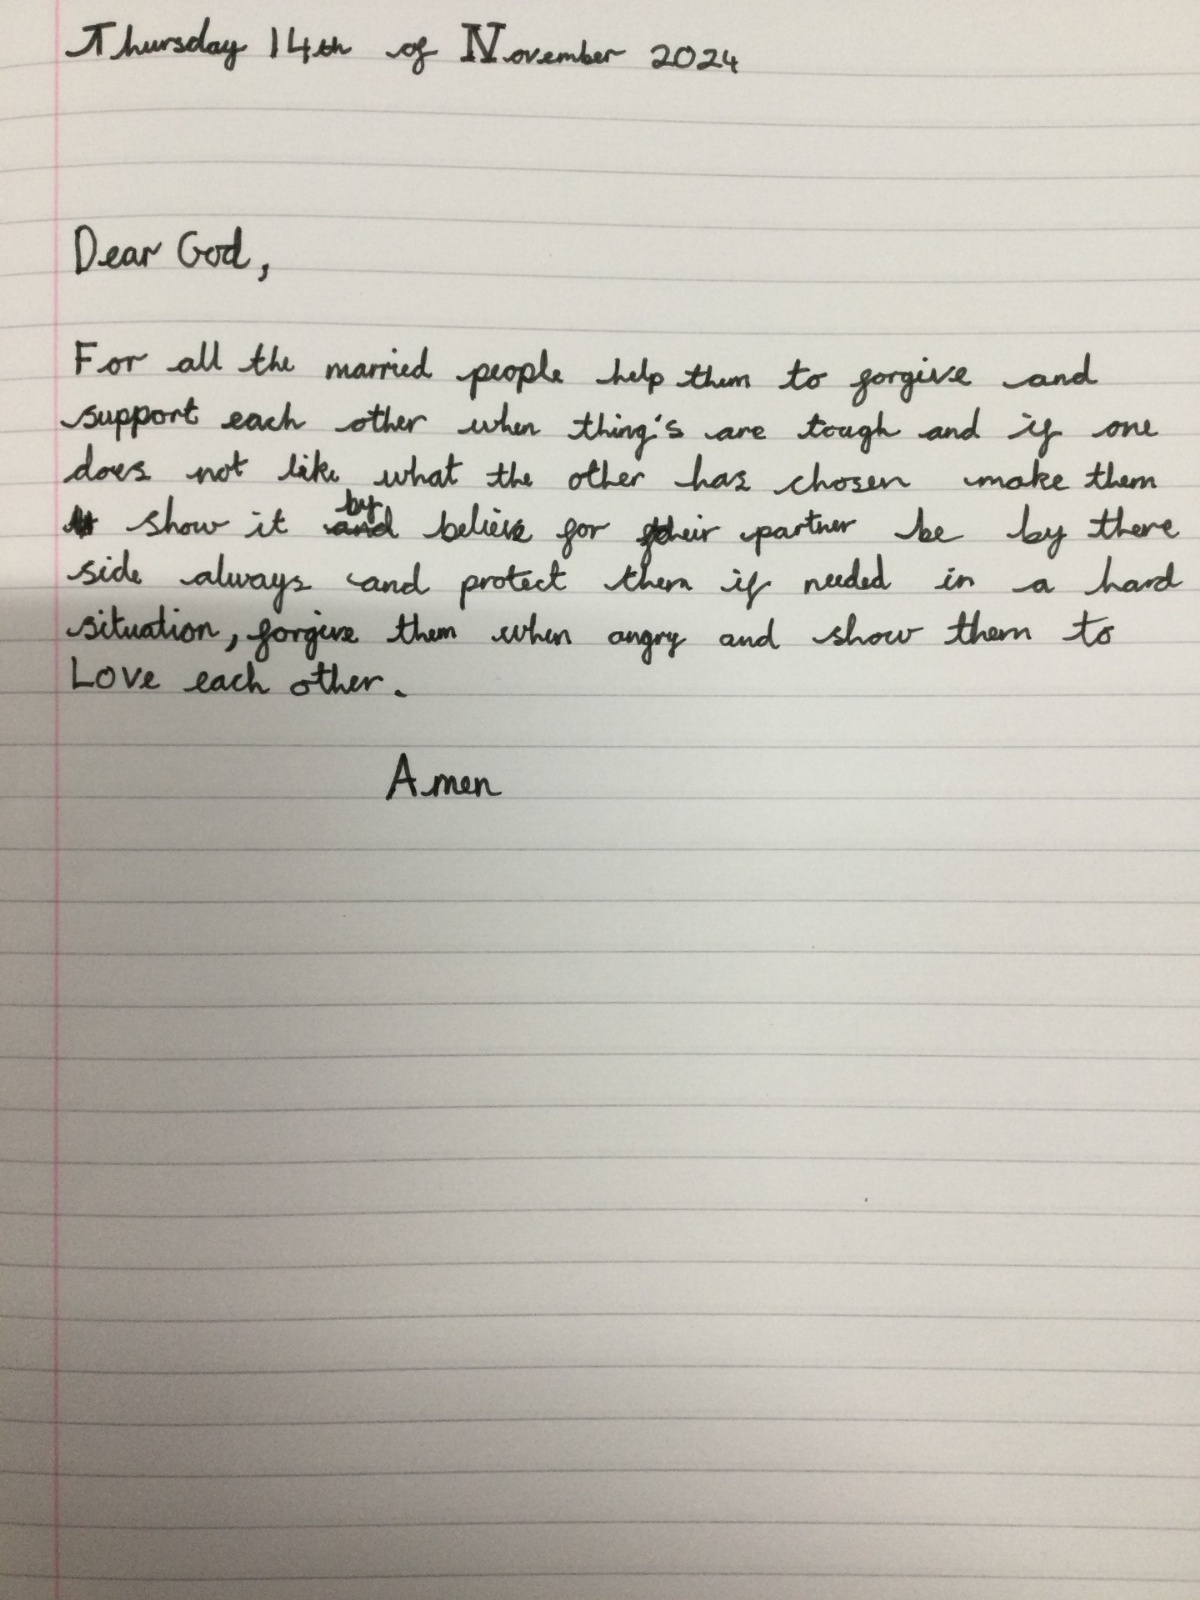 Thursday 14th of November 2024
Dear God,
For all the married people help them to forgive and
support each other when thing's are tough and if one
does not like what the other has chosen make them
show it by believe for their partner be by there
side always and protect them if needed in a hard
situation, forgive them when angry and show them to
Love each other.
Amen